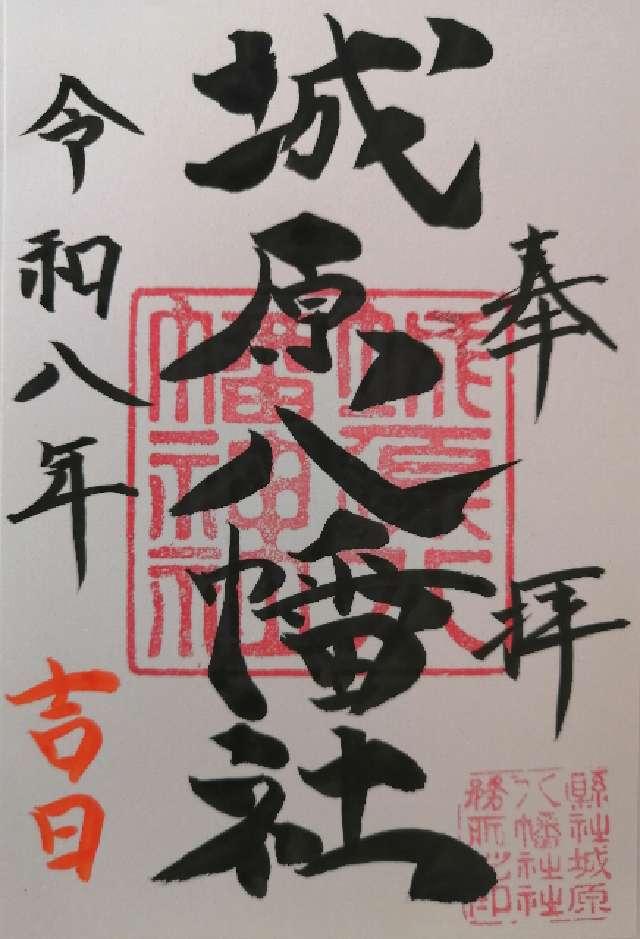 奉拝
城原八幡社
令和八年
吉日
城原八
幡神社
縣社城原
八幡社社
務所之印